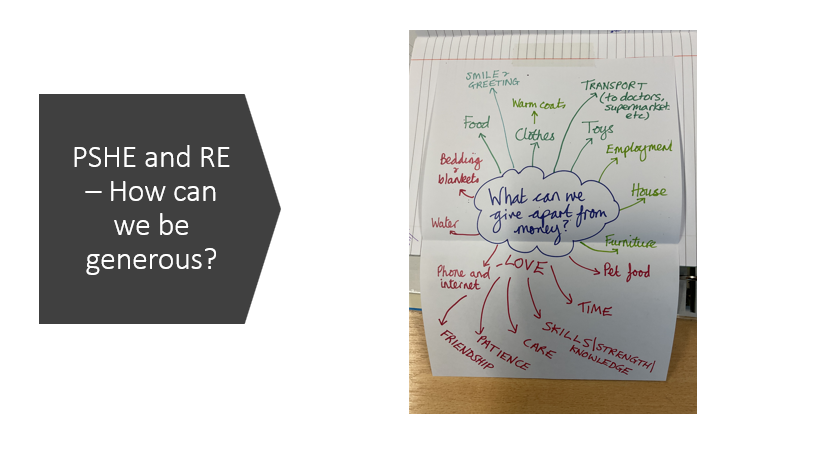 PSHE and RE
– How can
we be
generous?
SMILE &
GREETING
TRANSPORT
(to doctors,
supermarket
etc)
Warm coats
Food
Clothes
Toys
Employment
Bedding
&
blankets
House
What can we
give apart from
money?
Water
Furniture
Phone and
internet
LOVE
Pet food
TIME
SKILLS/STRENGTH/
KNOWLEDGE
CARE
PATIENCE
FRIENDSHIP